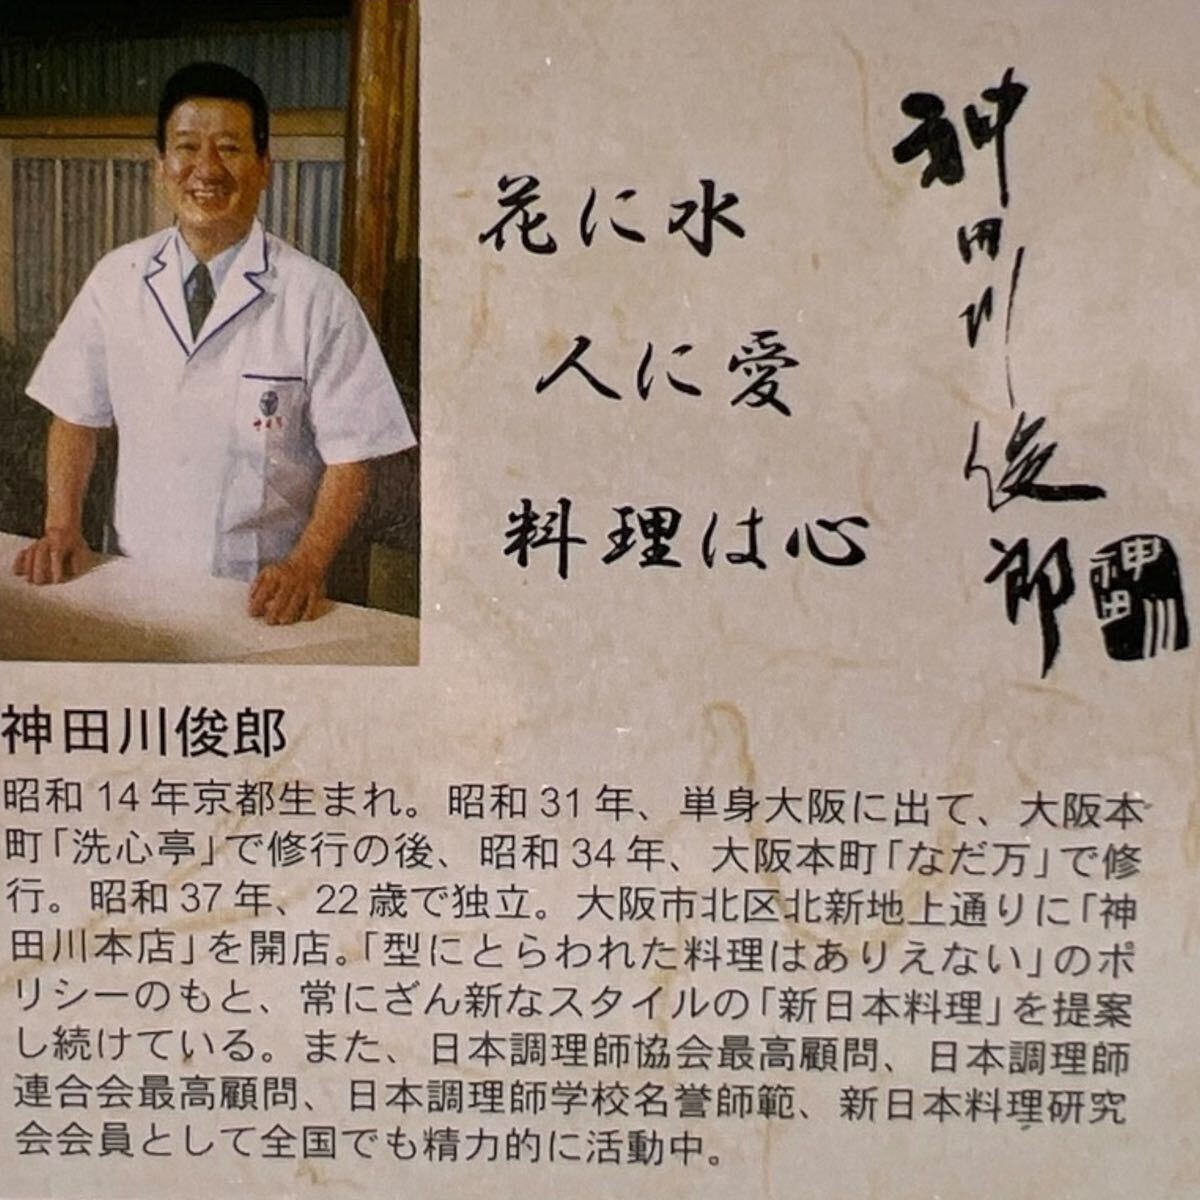 花に水
人に愛
料理は心
神田川俊郎
神田川
神田川俊郎
昭和14年京都生まれ。昭和31年、単身大阪に出て、大阪本
町「洗心亭」で修行の後、昭和34年、大阪本町「なだ万」で修
行。昭和37年、22歳で独立。大阪市北区北新地上通りに「神
田川本店」を開店。「型にとらわれた料理はありえない」のポ
リシーのもと、常にざん新なスタイルの「新日本料理」を提案
し続けている。また、日本調理師協会最高顧問、日本調理師
連合会最高顧問、日本調理師学校名誉師範、新日本料理研究
会会員として全国でも精力的に活動中。